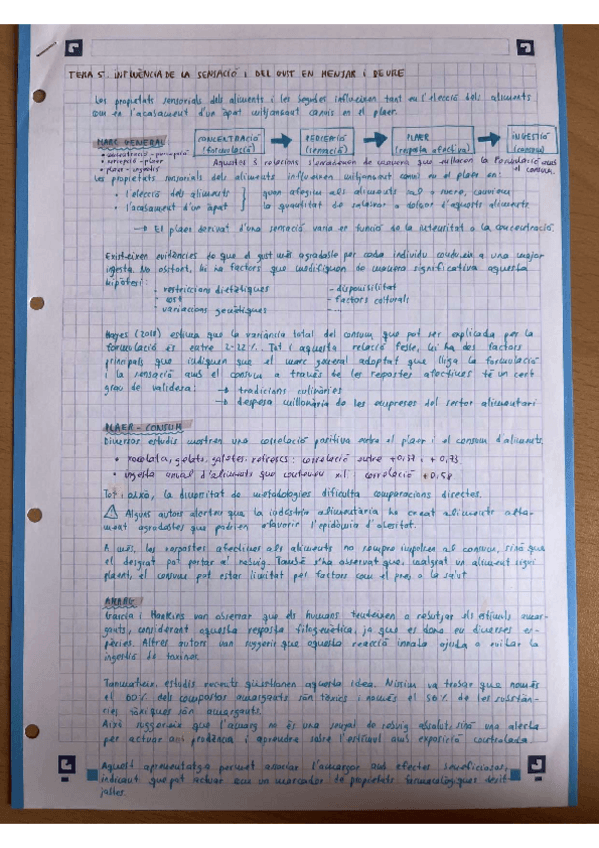 TEMA 5. INFLUÈNCIA DE LA SENSACIÓ I DEL GUST EN MENJAR I BEURE
Les propietats sensorials dels aliments i les begudes influeixen tant en l'elecció dels aliments
com en l'acabament d'un àpat mitjançant canvis en el plaer.
MARC GENERAL
CONCENTRACIÓ (formulació) → PERCEPCIÓ (sensació) → PLAER (resposta afectiva) → INGESTIÓ (consum)
• concentració-percepció
• percepció-plaer
• plaer-ingestió
Aquestes 3 relacions s'encadenen de manera que enllacen la formulació amb
el consum.
Les propietats sensorials dels aliments influeixen mitjançant canvi en el plaer en:
• l'elecció dels aliments } quan afegim als aliments sal o sucre, canviem
• l'acabament d'un àpat } la quantitat de salabror o dolçor d'aquests aliments
→ El plaer derivat d'una sensació varia en funció de la intensitat o la concentració.
Existeixen evidències de que el gust més agradable per cada individu condueix a una major
ingesta. No obstant, hi ha factors que modifiquen de manera significativa aquesta
hipòtesi:
- restriccions dietètiques - disponibilitat
- cost - factors culturals
- variacions genètiques
Hayes (2018) estima que la variància total del consum que pot ser explicada per la
formulació és entre 2-22%. Tot i aquesta relació feble, hi ha dos factors
principals que indiquen que el marc general adoptat que lliga la formulació
i la sensació amb el consum a través de les respostes afectives té un cert
grau de validesa: → tradicions culinàries
→ despesa milionària de les empreses del sector alimentari
PLAER - CONSUM
Diversos estudis mostren una correlació positiva entre el plaer i el consum d'aliments.
• xocolata, gelats, galetes, refrescs: correlació entre +0,57 i +0,73
• ingesta anual d'aliments que contenen xili: correlació +0,58
Tot i això, la diversitat de metodologies dificulta comparacions directes.
⚠ Alguns autors alerten que la indústria alimentària ha creat aliments alta-
ment agradables que podrien afavorir l'epidèmia d'obesitat.
A més, les respostes afectives als aliments no sempre impulsen al consum, sinó que
el desgrat pot portar a rebuig. També s'ha observat que, malgrat un aliment sigui
plaent, el consum pot estar limitat per factors com el preu o la salut
AMARG
Garcia i Hankins van observar que els humans tendeixen a rebutjar els estímuls amar-
gants, considerant aquesta resposta filogenètica, ja que es dona en diverses es-
pècies. Altres autors van suggerir que aquesta reacció innata ajuda a evitar la
ingestió de toxines.
Tanmateix, estudis recents qüestionen aquesta idea. Nissim va trobar que només
el 60% dels compostos amargants són tòxics i només el 56% de les substàn-
cies tòxiques són amargants.
Això suggereix que l'amarg no és una senyal de rebuig absolut, sinó una alerta
per actuar amb prudència i aprendre sobre l'estímul amb exposició controlada
Aquest aprenentatge permet associar l'amargor amb efectes beneficiosos,
indicant que pot actuar com un marcador de propietats farmacològiques desit-
jables.